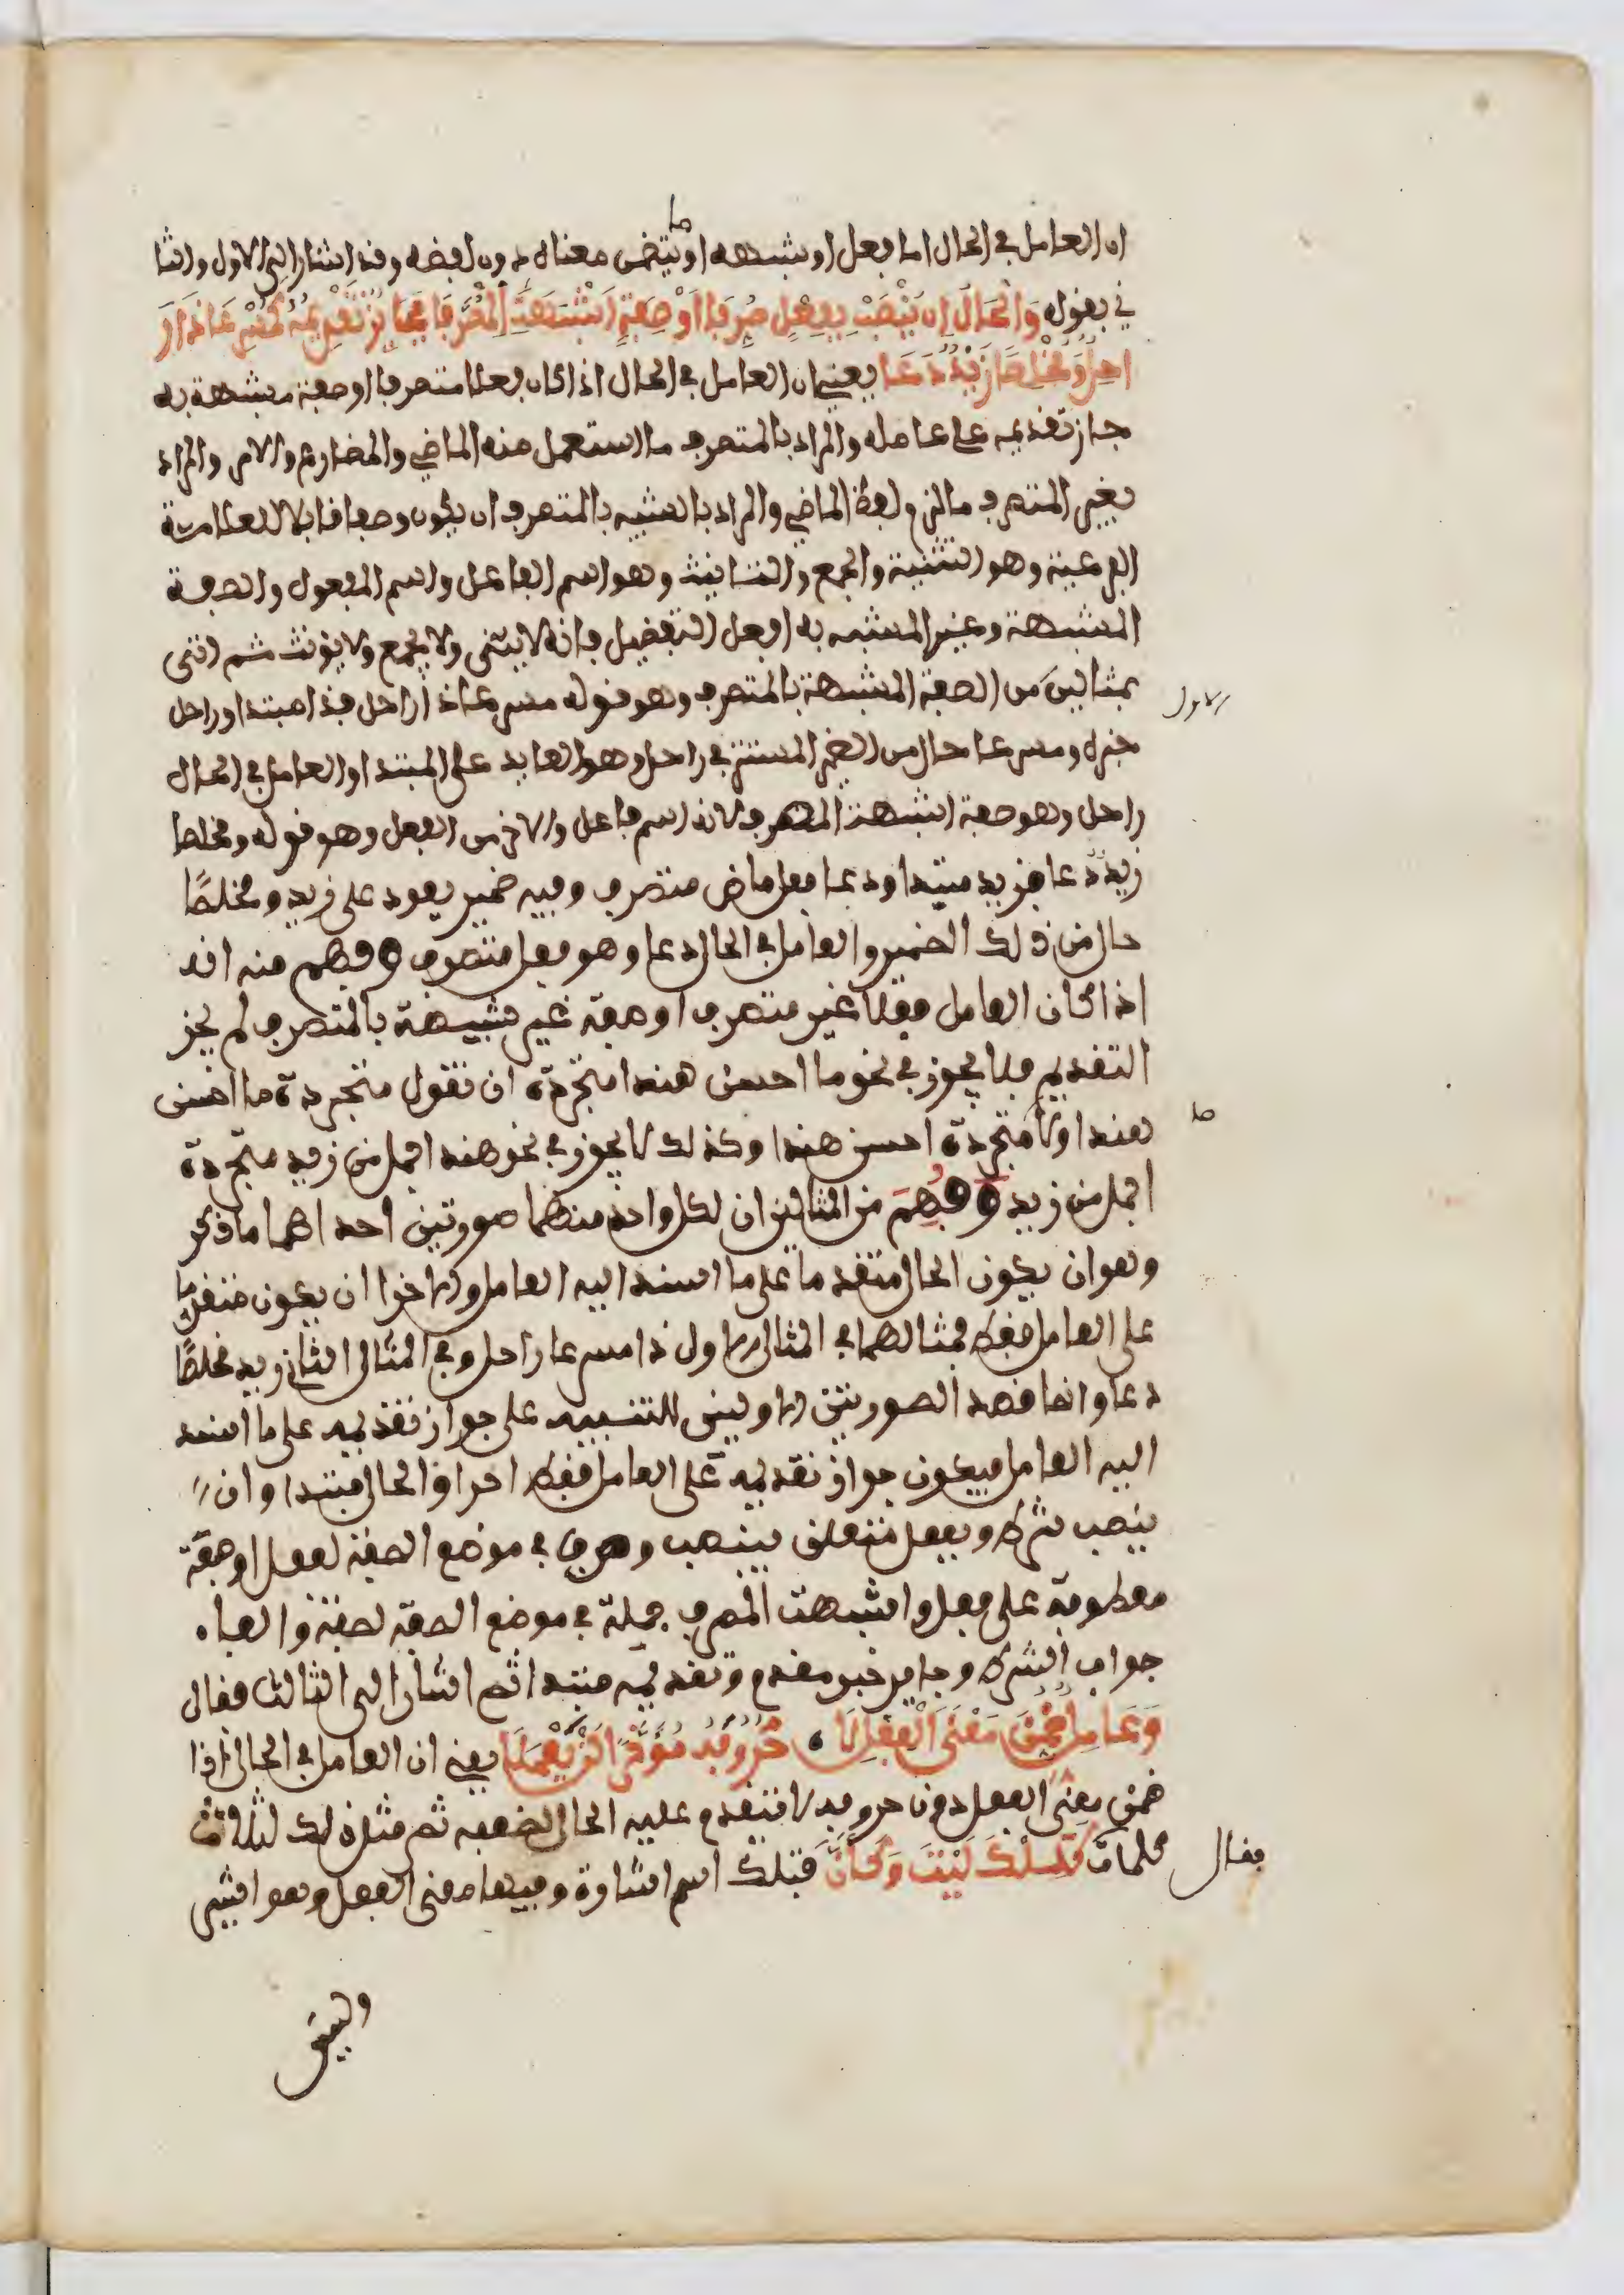 ان العامل في الحال اما فعل او شبهه او يتضمن معناه دون لفظه وقد اشار الى الاول والثا
ني بقوله وَالْحَالُ اِنْ يُنْصَبْ بِفِعْلٍ صُرِّفَا اَوْ صِفَةٍ اَشْبَهَتِ الْمُصَرَّفَا فَجَائِزٌ تَقْدِيمُهُ كَمُسْرِعَا ذَا رَ
احِلٌ وَمُخْلِصًا زَيْدٌ دَعَا يعني ان العامل في الحال اذا كان فعلا متصرفا او صفة مشبهة به
جاز تقديمه على عامله والمراد بالمتصرف ما استعمل منه الماضي والمضارع والامر والمراد
بغير المتصرف ما لزم لفظ الماضي والمراد بالشبيه بالمتصرف ان يكون وصفا قابلا للعلامة
الفرعية وهو التثنية والجمع والتانيث وهو اسم الفاعل واسم المفعول والصفة
المشبهة وغير المشبه به افعل التفضيل فانه لا يثنى ولا يجمع ولا يؤنث ثم اتى
بمثالين من الصفة المشبهة بالمتصرف وهو قوله مسرعا ذا راحل فذا مبتدا وراحل
الاول
خبره ومسرعا حال من الضمير المستتر في راحل وهو العايد على المبتدا والعامل في الحال
راحل وهو صفة اشبهت المصرف لانه اسم فاعل والاخر من الفعل وهو قوله ومخلصا
زيد دعا فزيد مبتدا ودعا فعل ماض متصرف وفيه ضمير يعود على زيد ومخلصًا
حال من ذلك الضمير والعامل في الحال دعا وهو فعل متصرف وفهم منه انه
اذا كان العامل فعلا غير متصرف او صفة غير شبيهة بالمتصرف لم يجز
التقديم فلا يجوز في نحو ما احسن هندا متجردة ان تقول متجردة ما احسن
هندا ولا ما متجردة احسن هندا وكذلك لا يجوز في نحو هند اجمل من زيد متجردة
اجمل من زيد وفُهِمَ من المثالين ان لكل واحد منهما صورتين احداهما ما ذكر
وهو ان يكون الحال متقدما على ما اسند اليه العامل والاخرا ان يكون متقدما
على العامل فقط فمثالهما في المثال الاول ذا مسرعا راحل وفي المثال الثاني زيد مخلصًا
دعا وانما قصد الصورتين الاوليين للتنبيه على جواز تقديمه على ما اسند
اليه العامل فيكون جواز تقديمه على العامل فقط احرا والحال مبتدا وان
ينصب شرط وبفعل متعلق بينصب وصرف في موضع الصفة لفعل او صفة
معطوفة على فعل واشبهت المصرف جملة في موضع الصفة لصفة والفاء
جواب الشرط وجايز خبر مقدم وتقديمه مبتدا ثم اشار الى الثالث فقال
وَعَامِلٌ ضُمِّنَ مَعْنَى الْفِعْلِ لَا ، حُرُوفَهُ مُؤَخَّرًا لَنْ يَعْمَلَا يعني ان العامل في الحال اذا
ضمن معنى الفعل دون حروفه لا تتقدم عليه الحال لضعفه ثم مثل ذلك بثلاث
فقال
كلمات كَتِلْكَ لَيْتَ وَكَأَنَّ فتلك اسم اشارة وفيها معنى الفعل وهو اشير
وليت